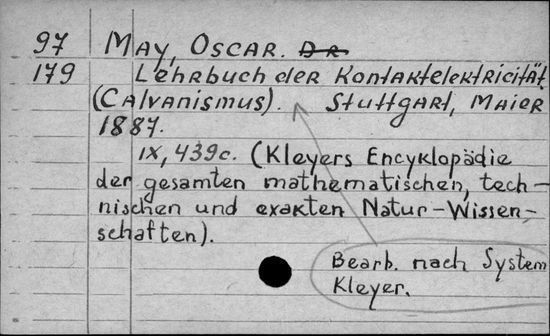 97 MAY, OSCAR. DR
179 LEHRBUCH DER KONTAKTELEKTRICITÄT
(CALVANISMUS). STUTTGART, MAIER
1887.
IX, 439c. (Kleyers Encyklopädie
der gesamten mathematischen, tech-
nischen und exakten Natur-Wissen-
schaften).
Bearb. nach System
Kleyer.